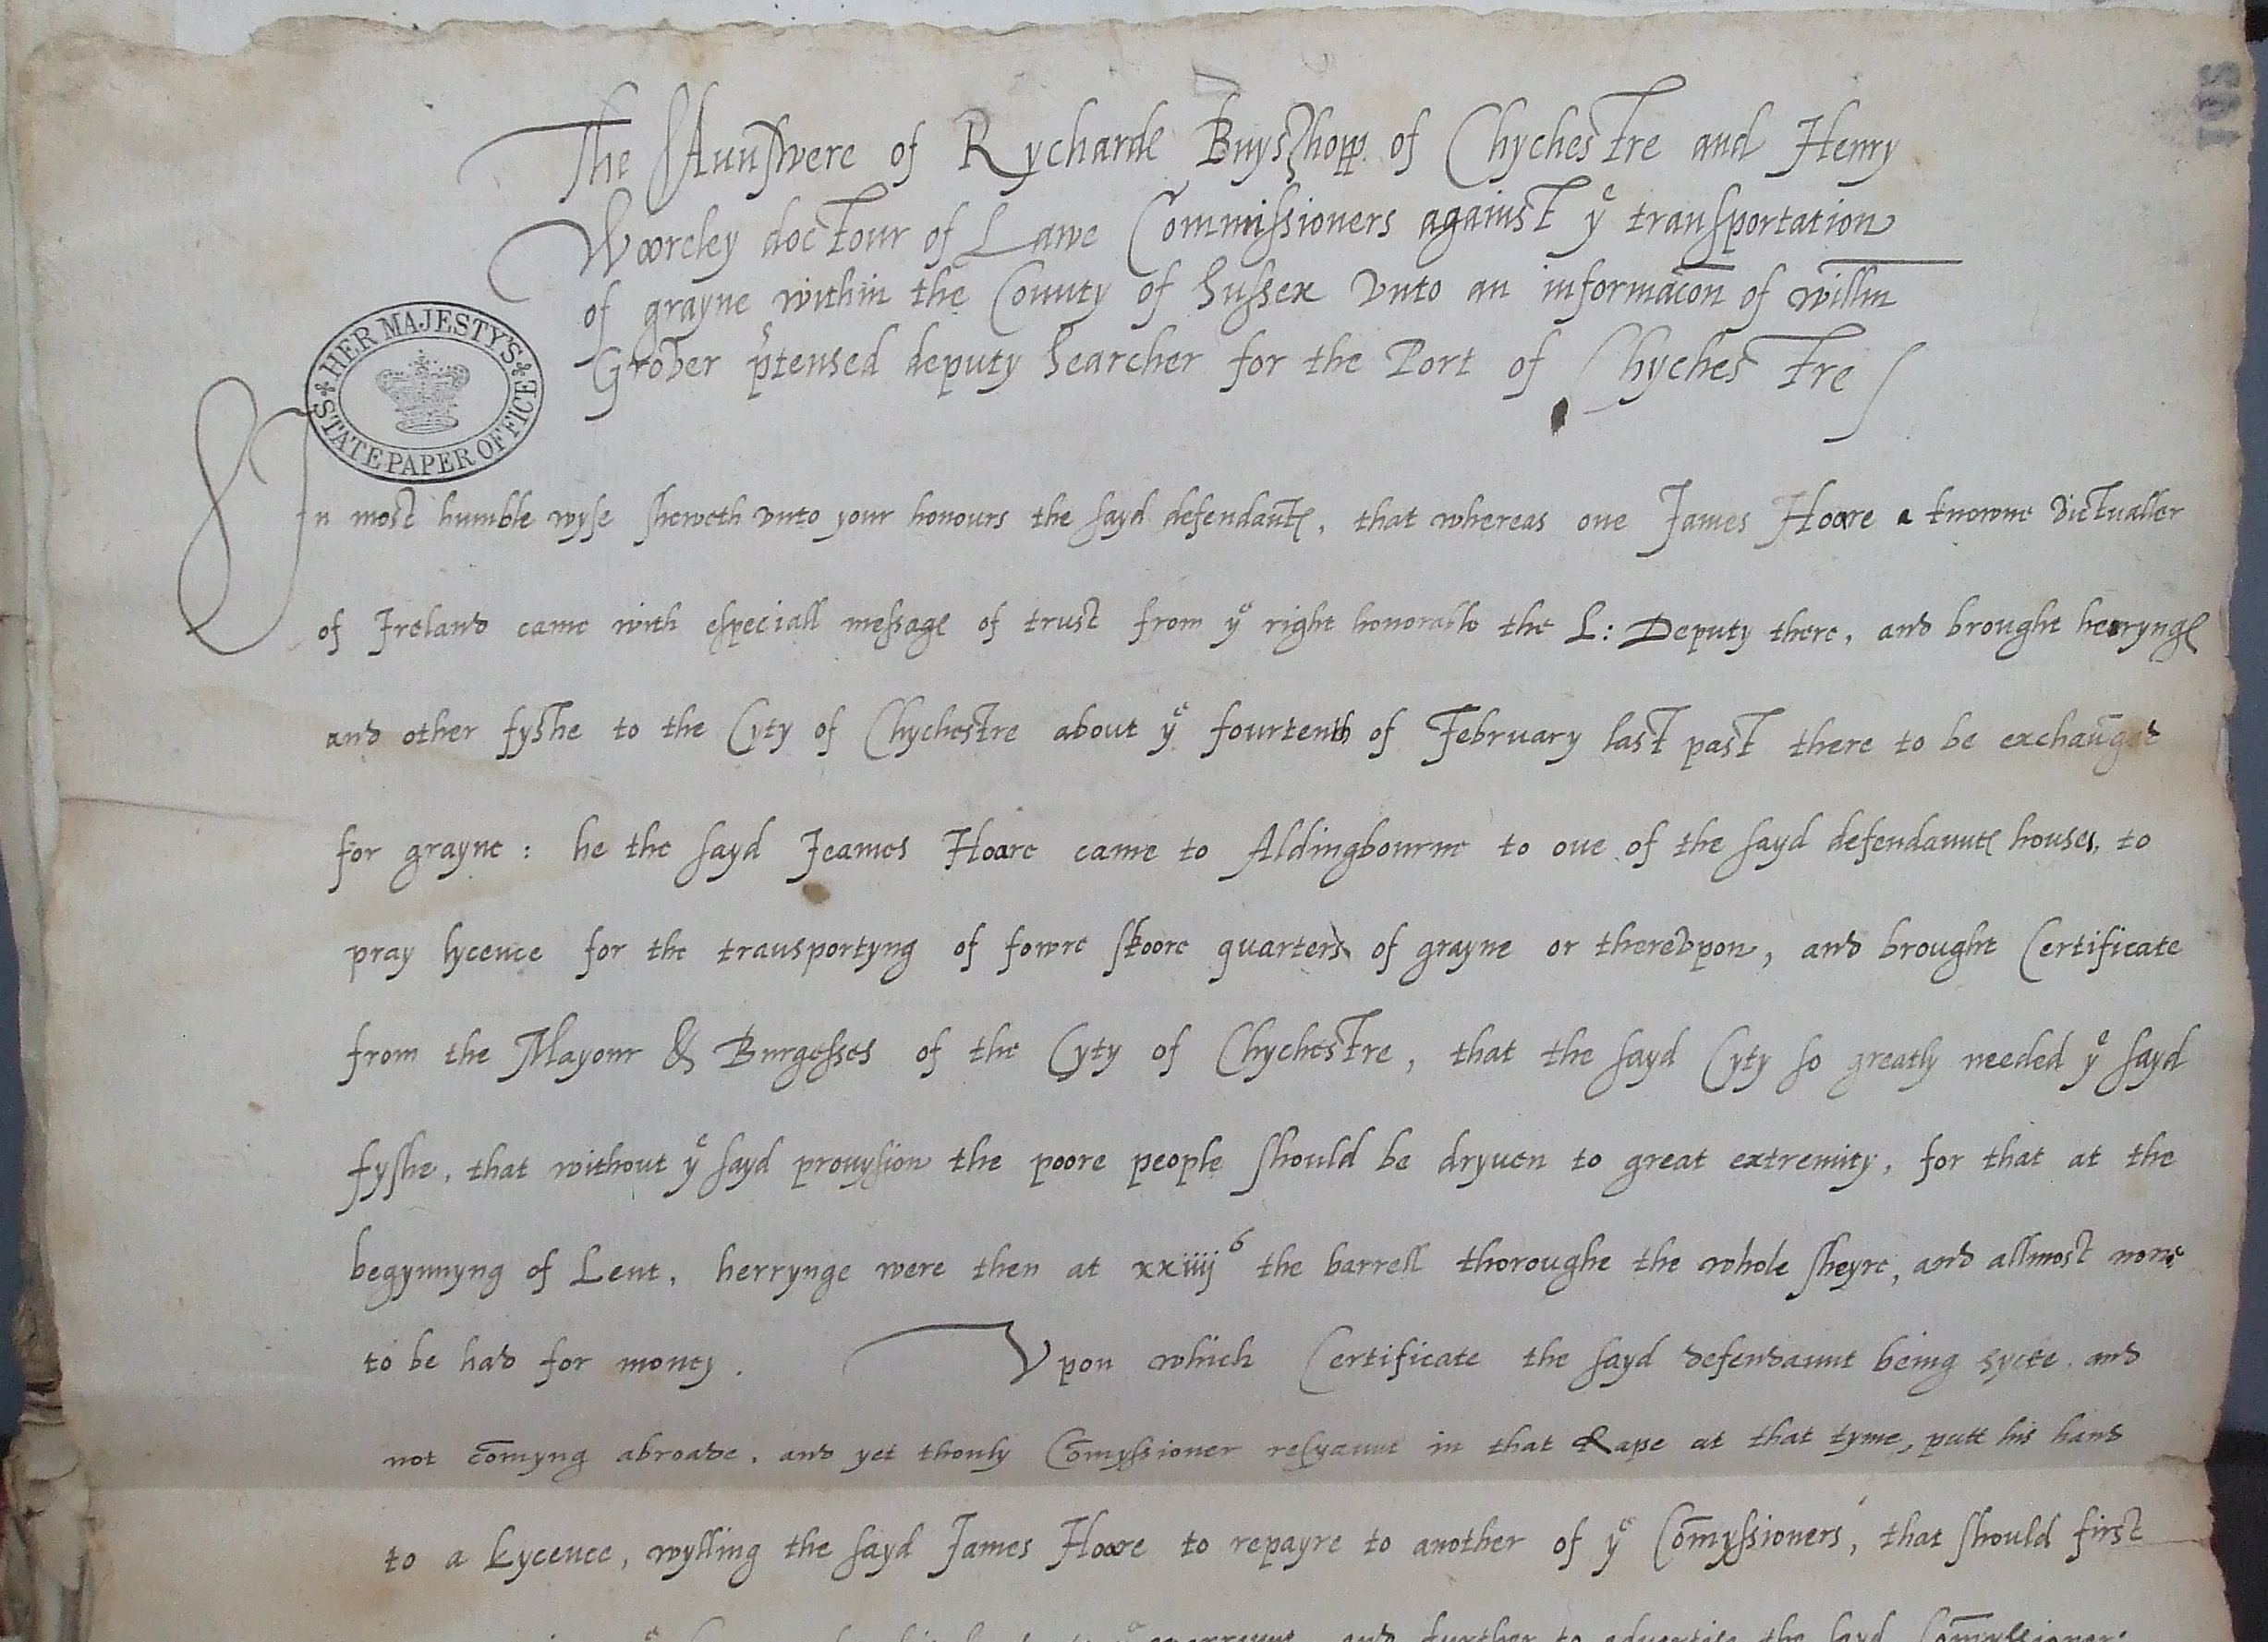 The Aunswere of Rycharde Buysshopp of Chychestre and Henry
Woorcley doctour of Lawe Commissioners against yͤ transportation
of grayne within the County of Sussex vnto an informac̄on of willm̄
Grover p̄tensed deputy Searcher for the Port of Chychestre
HER MAJESTY'S STATE PAPER OFFICE
In most humble wyse sheweth vnto your honours the sayd defendantꝭ, that whereas one James Hoore a knowne victualler
of Ireland came with especiall messagꝭ of trust from yͤ right honorable the L: Deputy there, and brought herryngꝭ
and other fyshe to the Cyty of Chychestre about yͤ fourtenth of February last past there to be exchaūged
for grayne : he the sayd Jeames Hoare came to Aldingbourne to one of the sayd defendauntꝭ houses, to
pray lycence for the transportyng of fowre skoore quarters of grayne or therevpon, and brought Certificate
from the Mayour & Burgesses of the Cyty of Chychestre, that the sayd Cyty so greatly needed yͤ sayd
fyshe, that without yͤ sayd prouysion the poore people should be dryuen to great extremity, for that at the
begynnyng of Lent, herrynge were then at xxiiijˢ the barrell thoroughe the whole sheyre, and allmost none
to be had for money. Vpon which Certificate the sayd defendaunt being sycke, and
not com̄yng abroade, and yet thonly Com̄yssioner resyaunt in that Rape at that tyme, putt his hand
to a Lycence, wylling the sayd James Hoore to repayre to another of yͤ Com̄yssioners, that should first
and further to advertise the sayd Com̄yssioners